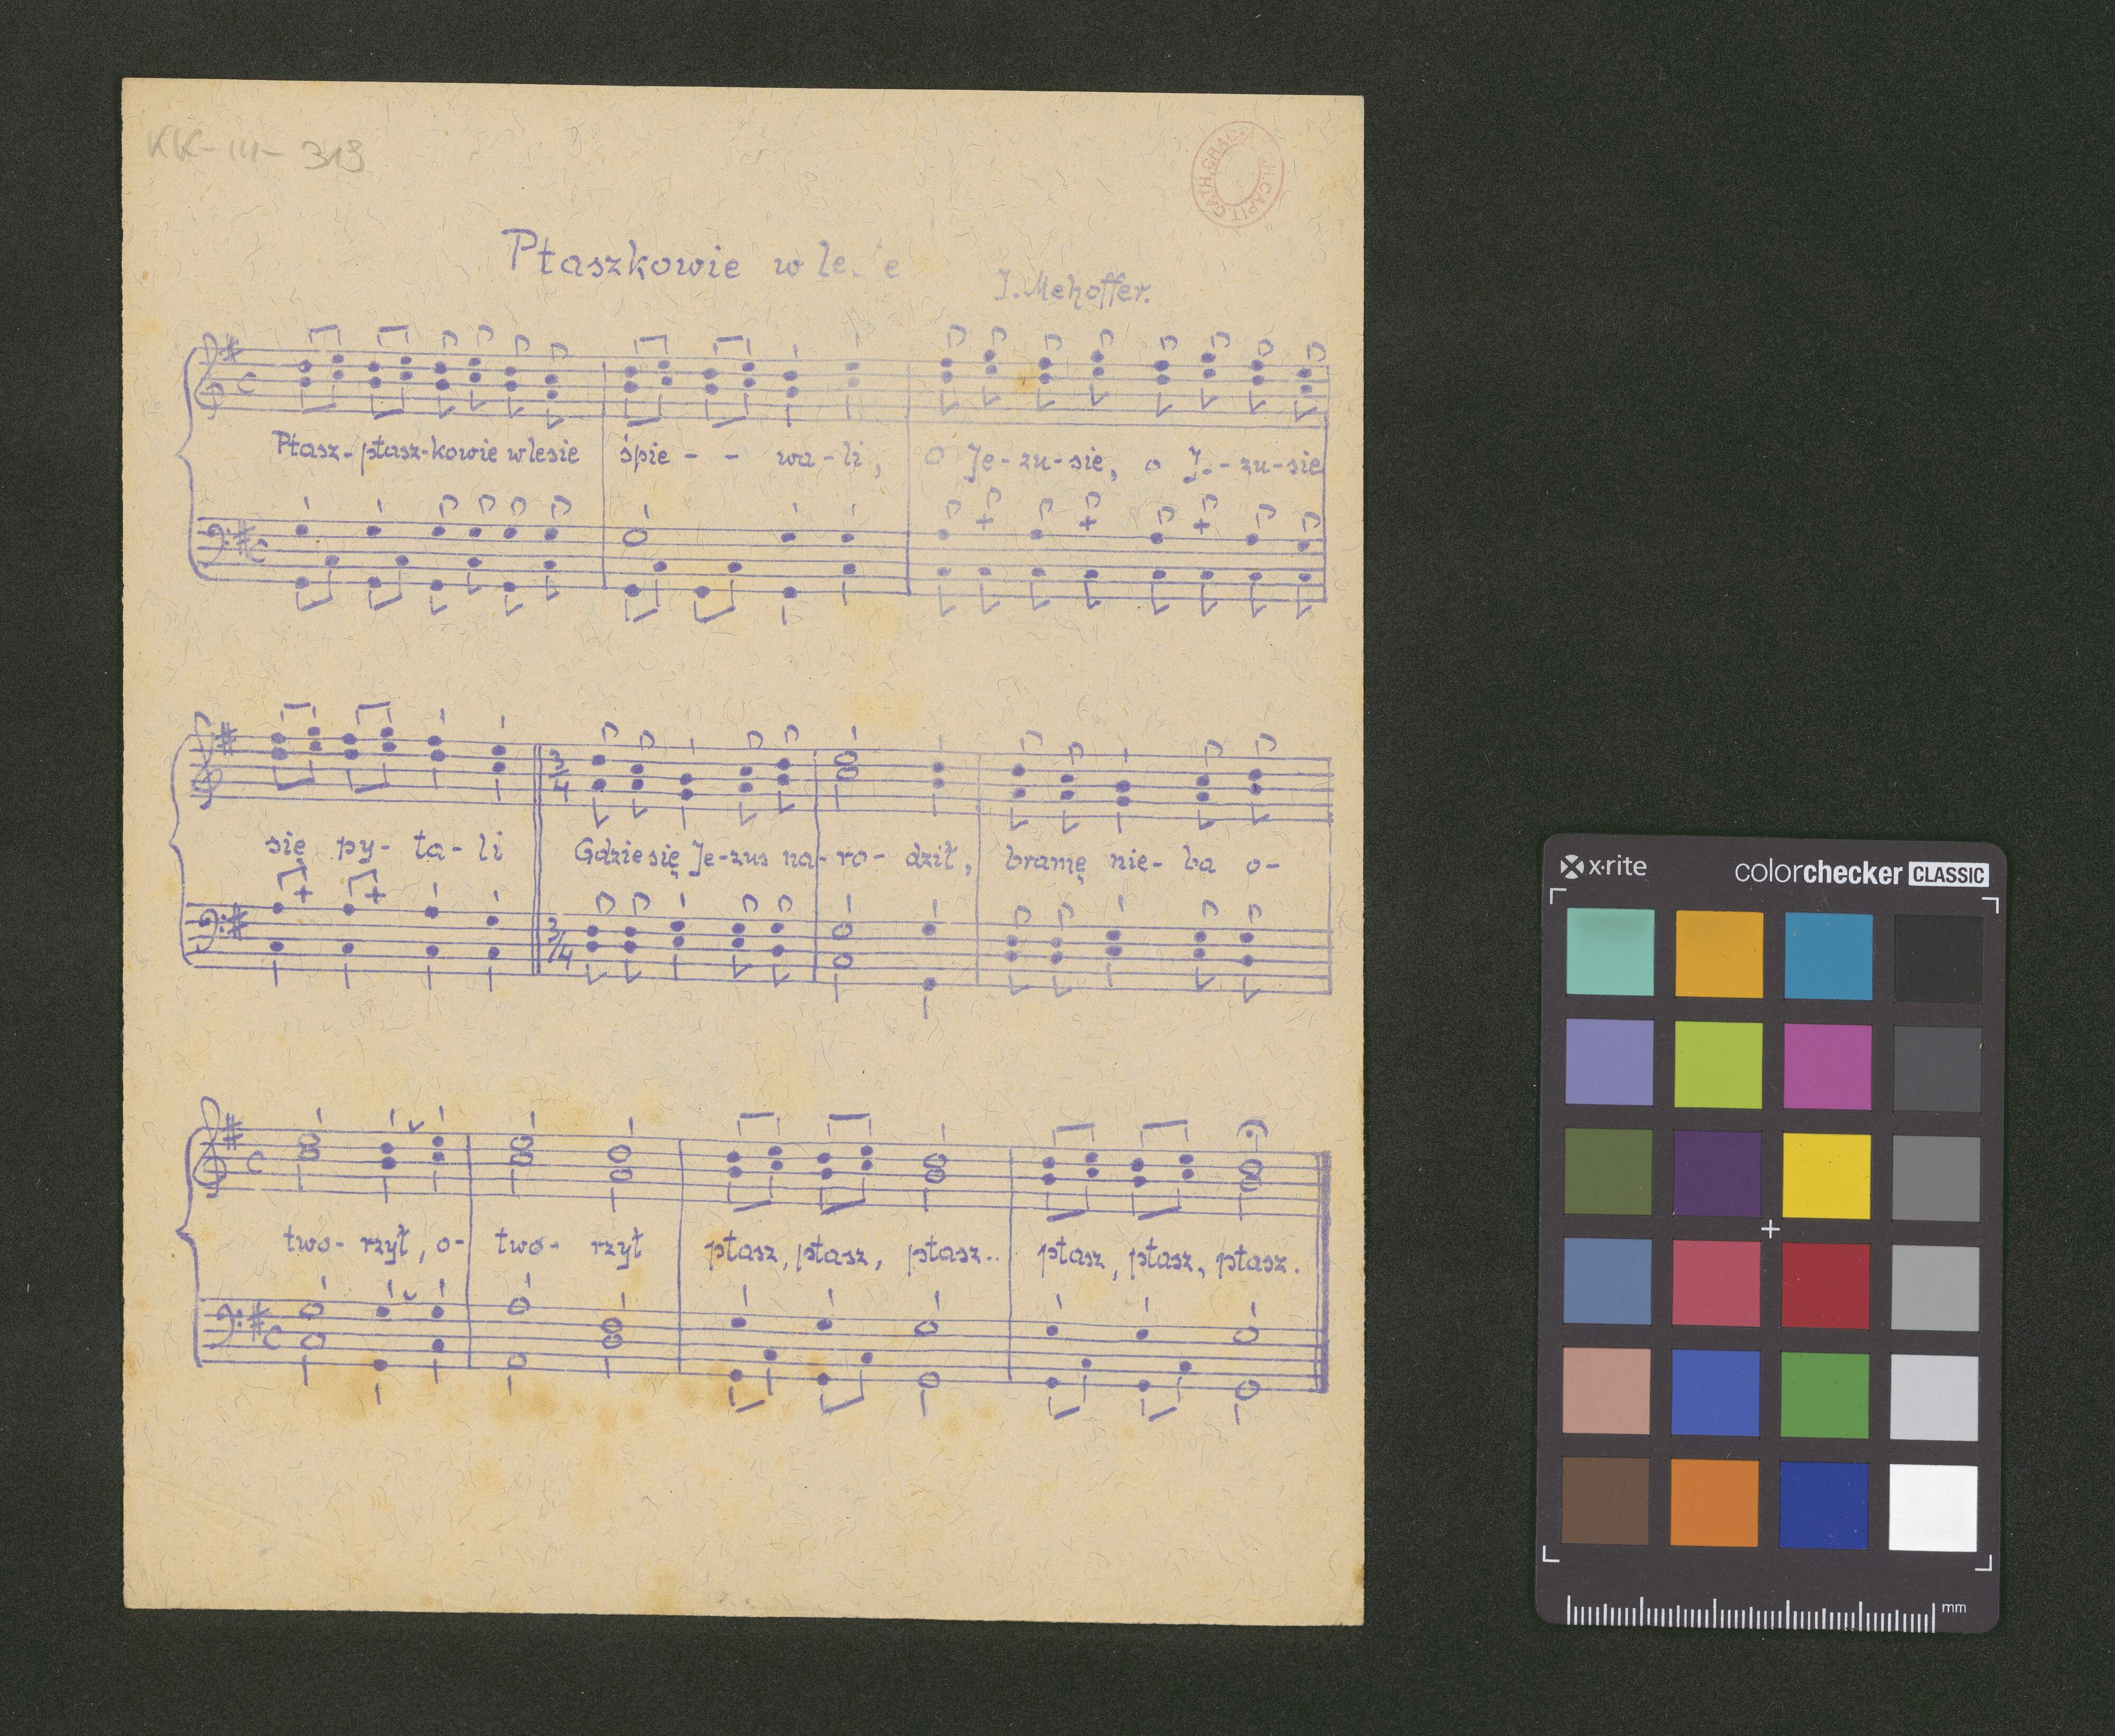 KK-III-313
CATH. CRAC.
H. CAPIT.
Ptaszkowie w le e
J. Mehoffer.
Ptasz-ptasz-kowie w lesie śpie - - wa-li, o Je-zu-sie, o J.-zu-sie
się py-ta-li Gdzie się Je-zus na-ro-dził, bramę nie-ba o-
two-rzył, o-two-rzył ptasz, ptasz, ptasz.. ptasz, ptasz, ptasz.
x·rite
colorchecker CLASSIC
mm